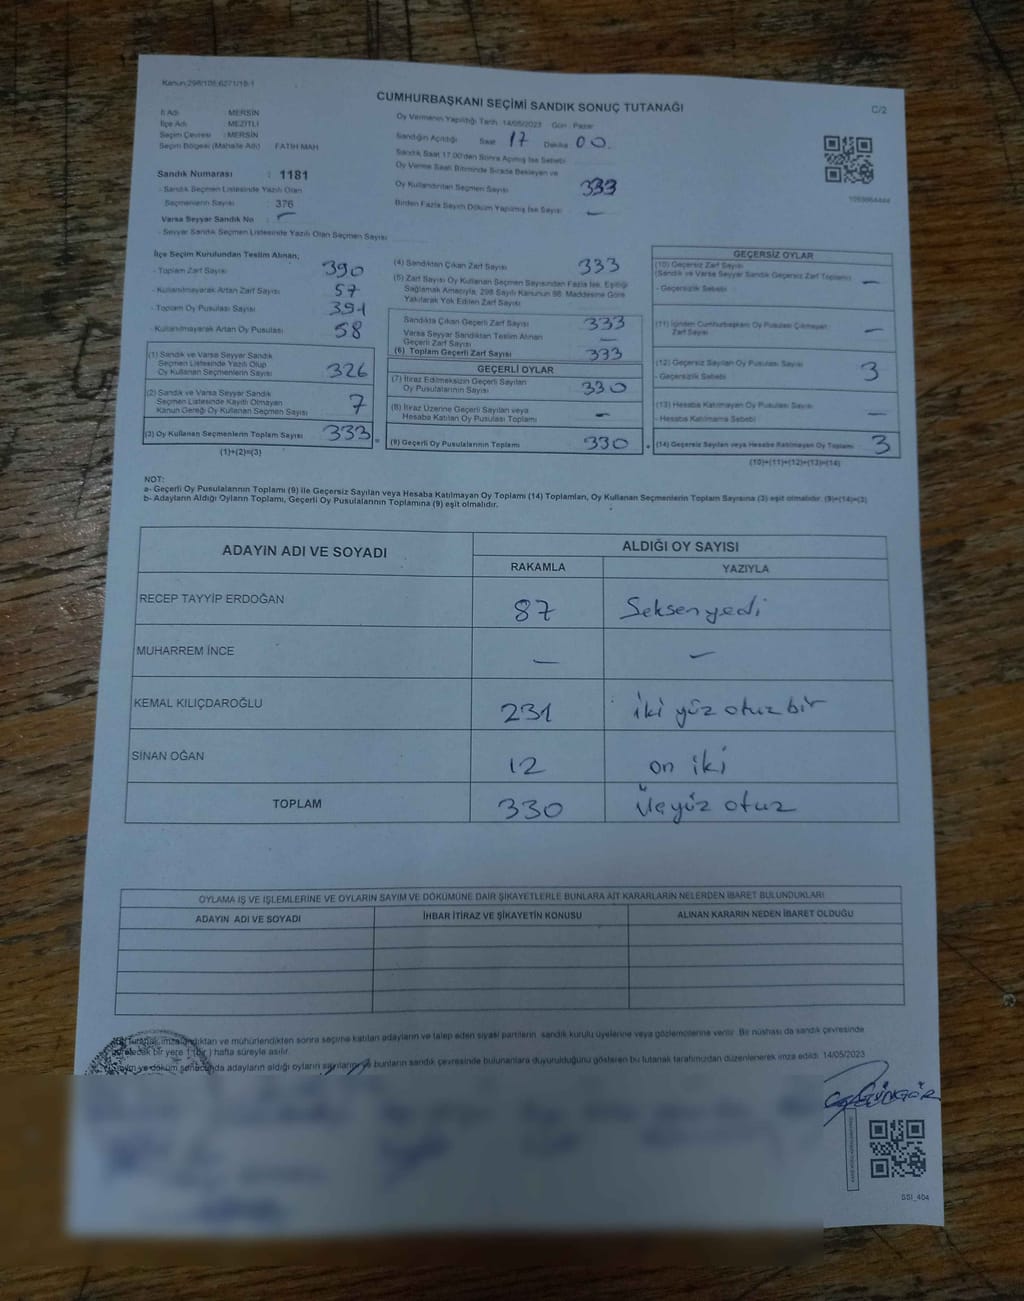 Kanun:298/105;6271/18-1
CUMHURBAŞKANI SEÇİMİ SANDIK SONUÇ TUTANAĞI
C/2
İl Adı : MERSİN
İlçe Adı : MEZİTLİ
Seçim Çevresi : MERSİN
Seçim Bölgesi (Mahalle Adı) FATİH MAH
Sandık Numarası : 1181
- Sandık Seçmen Listesinde Yazılı Olan
Seçmenlerin Sayısı : 376
Varsa Seyyar Sandık No : –
- Seyyar Sandık Seçmen Listesinde Yazılı Olan Seçmen Sayısı
Oy Vermenin Yapıldığı Tarih 14/05/2023 Gün : Pazar
Sandığın Açıldığı Saat 17 Dakika 00
Sandık Saat 17.00'den Sonra Açılmış İse Sebebi
Oy Verme Saati Bitiminde Sırada Bekleyen ve
Oy Kullandırılan Seçmen Sayısı 333
Birden Fazla Sayım Döküm Yapılmış İse Sayısı –
İlçe Seçim Kurulundan Teslim Alınan,
- Toplam Zarf Sayısı 390
- Kullanılmayarak Artan Zarf Sayısı 57
- Toplam Oy Pusulası Sayısı 391
- Kullanılmayarak Artan Oy Pusulası 58
(1) Sandık ve Varsa Seyyar Sandık
Seçmen Listesinde Yazılı Olup
Oy Kullanan Seçmenlerin Sayısı 326
(2) Sandık ve Varsa Seyyar Sandık
Seçmen Listesinde Kayıtlı Olmayan
Kanun Gereği Oy Kullanan Seçmen Sayısı 7
(3) Oy Kullanan Seçmenlerin Toplam Sayısı 333 =
(1)+(2)=(3)
(4) Sandıktan Çıkan Zarf Sayısı 333
(5) Zarf Sayısı Oy Kullanan Seçmen Sayısından Fazla İse, Eşitliği
Sağlamak Amacıyla, 298 Sayılı Kanunun 98. Maddesine Göre
Yakılarak Yok Edilen Zarf Sayısı
Sandıkta Çıkan Geçerli Zarf Sayısı 333
Varsa Seyyar Sandıktan Teslim Alınan
Geçerli Zarf Sayısı –
(6) Toplam Geçerli Zarf Sayısı 333
GEÇERLİ OYLAR
(7) İtiraz Edilmeksizin Geçerli Sayılan
Oy Pusulalarının Sayısı 330
(8) İtiraz Üzerine Geçerli Sayılan veya
Hesaba Katılan Oy Pusulası Toplamı –
(9) Geçerli Oy Pusulalarının Toplamı 330 +
GEÇERSİZ OYLAR
(10) Geçersiz Zarf Sayısı
(Sandık ve Varsa Seyyar Sandık Geçersiz Zarf Toplamı)
- Geçersizlik Sebebi –
(11) İçinden Cumhurbaşkanı Oy Pusulası Çıkmayan
Zarf Sayısı –
(12) Geçersiz Sayılan Oy Pusulası Sayısı
- Geçersizlik Sebebi 3
(13) Hesaba Katılmayan Oy Pusulası Sayısı
- Hesaba Katılmama Sebebi –
(14) Geçersiz Sayılan veya Hesaba Katılmayan Oy Toplamı 3
(10)+(11)+(12)+(13)=(14)
NOT:
a- Geçerli Oy Pusulalarının Toplamı (9) ile Geçersiz Sayılan veya Hesaba Katılmayan Oy Toplamı (14) Toplamları, Oy Kullanan Seçmenlerin Toplam Sayısına (3) eşit olmalıdır. (9)+(14)=(3)
b- Adayların Aldığı Oyların Toplamı, Geçerli Oy Pusulalarının Toplamına (9) eşit olmalıdır.
ADAYIN ADI VE SOYADI
ALDIĞI OY SAYISI
RAKAMLA YAZIYLA
RECEP TAYYİP ERDOĞAN 87 Seksenyedi
MUHARREM İNCE – –
KEMAL KILIÇDAROĞLU 231 iki yüz otuz bir
SİNAN OĞAN 12 on iki
TOPLAM 330 Üçyüz otuz
OYLAMA İŞ VE İŞLEMLERİNE VE OYLARIN SAYIM VE DÖKÜMÜNE DAİR ŞİKAYETLERLE BUNLARA AİT KARARLARIN NELERDEN İBARET BULUNDUKLARI
ADAYIN ADI VE SOYADI İHBAR İTİRAZ VE ŞİKAYETİN KONUSU ALINAN KARARIN NEDEN İBARET OLDUĞU
tutanak imzalandıktan ve mühürlendikten sonra seçime katılan adayların ve talep eden siyasi partilerin sandık kurulu üyelerine veya gözlemcilerine verilir. Bir nüshası da sandık çevresinde
bir yere 1 (bir) hafta süreyle asılır.
Sayım ve döküm sonucunda adayların aldığı oyların sayılarını ve bunların sandık çevresinde bulunanlara duyurulduğunu gösteren bu tutanak tarafımızdan düzenlenerek imza edildi. 14/05/2023
SSI_404